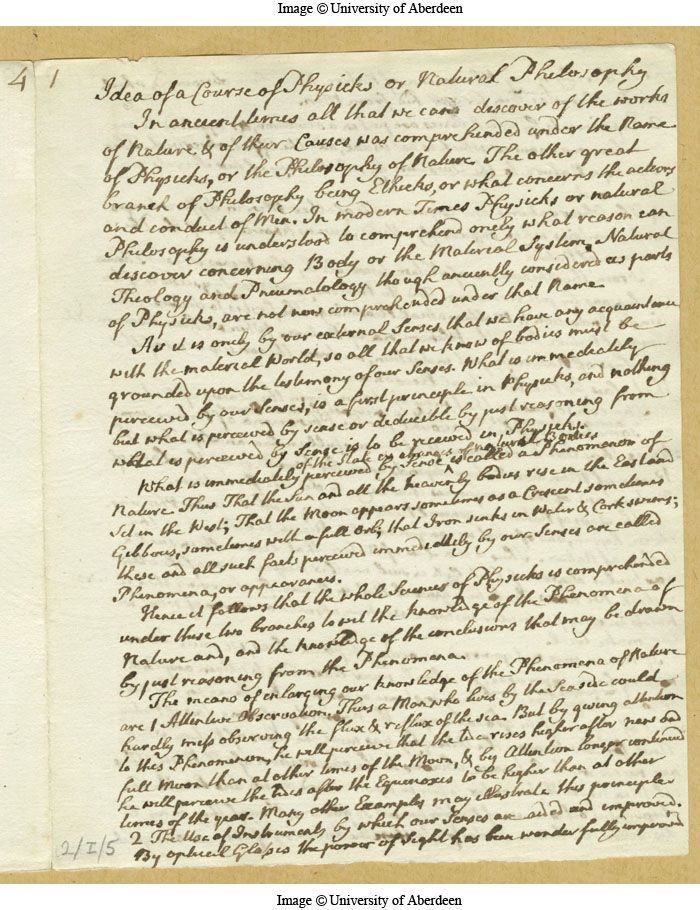 Image © University of Aberdeen
4
1
Idea of a Course of Physicks or Natural Philosophy
In ancient times all that we can discover of the works
of Nature & of their Causes was comprehended under the Name
of Physicks, or the Philosophy of Nature. The other great
branch of Philosophy being Ethicks, or what concerns the actions
and conduct of Men. In modern Times Physicks or natural
Philosophy is understood to comprehend onely what reason can
discover concerning Body or the Material System. Natural
Theology and Pneumatology though anciently considered as parts
of Physick, are not now comprehended under that Name
As it is onely by our external Senses that we have any acquaintance
with the material World, so all that we know of bodies must be
grounded upon the testimony of our Senses. What is immediately
perceived by our Senses, is a first principle in Physicks, and nothing
but what is perceived by sense or deducible by just reasoning from
what is perceived by Sense is to be received in Physick.
of the State or of natural Bodies
What is immediately perceived by Sense ^ is called a Phenomenon of
Nature. Thus That the Sun and all the heavenly bodies rise in the East and
Set in the West; That the Moon appears sometimes as a Crescent sometimes
Gibbous, sometimes with a full Orb; that Iron sinks in Water & Cork swims;
these and all such facts perceived immediatly by our Senses are called
Phenomena, or appearances.
Hence it follows that the whole Science of Physicks is comprehended
under these two branches to wit the knowledge of the Phenomena of
Nature and, and the knowledge of the conclusions that may be drawn
by just reasoning from the Phenomena.
The means of enlarging our knowledge of the Phenomena of Nature
are 1 Attentive Observation. Thus a Man who lives by the Sea side could
hardly miss observing the flux & reflux of the sea. But by giving attention
to this Phenomenon, he will perceive that the tide rises higher after new and
full Moon than at other times of the Moon, & by Attention longer continued
he will perceive the tides after the Equinoxes to be higher than at other
times of the year. Many other Examples may illustrate this principle
2 The Use of Instruments by which our Senses are aided and improved.
By optical Glasses the power of Sight has been wonderfully improved
2/I/5
Image © University of Aberdeen